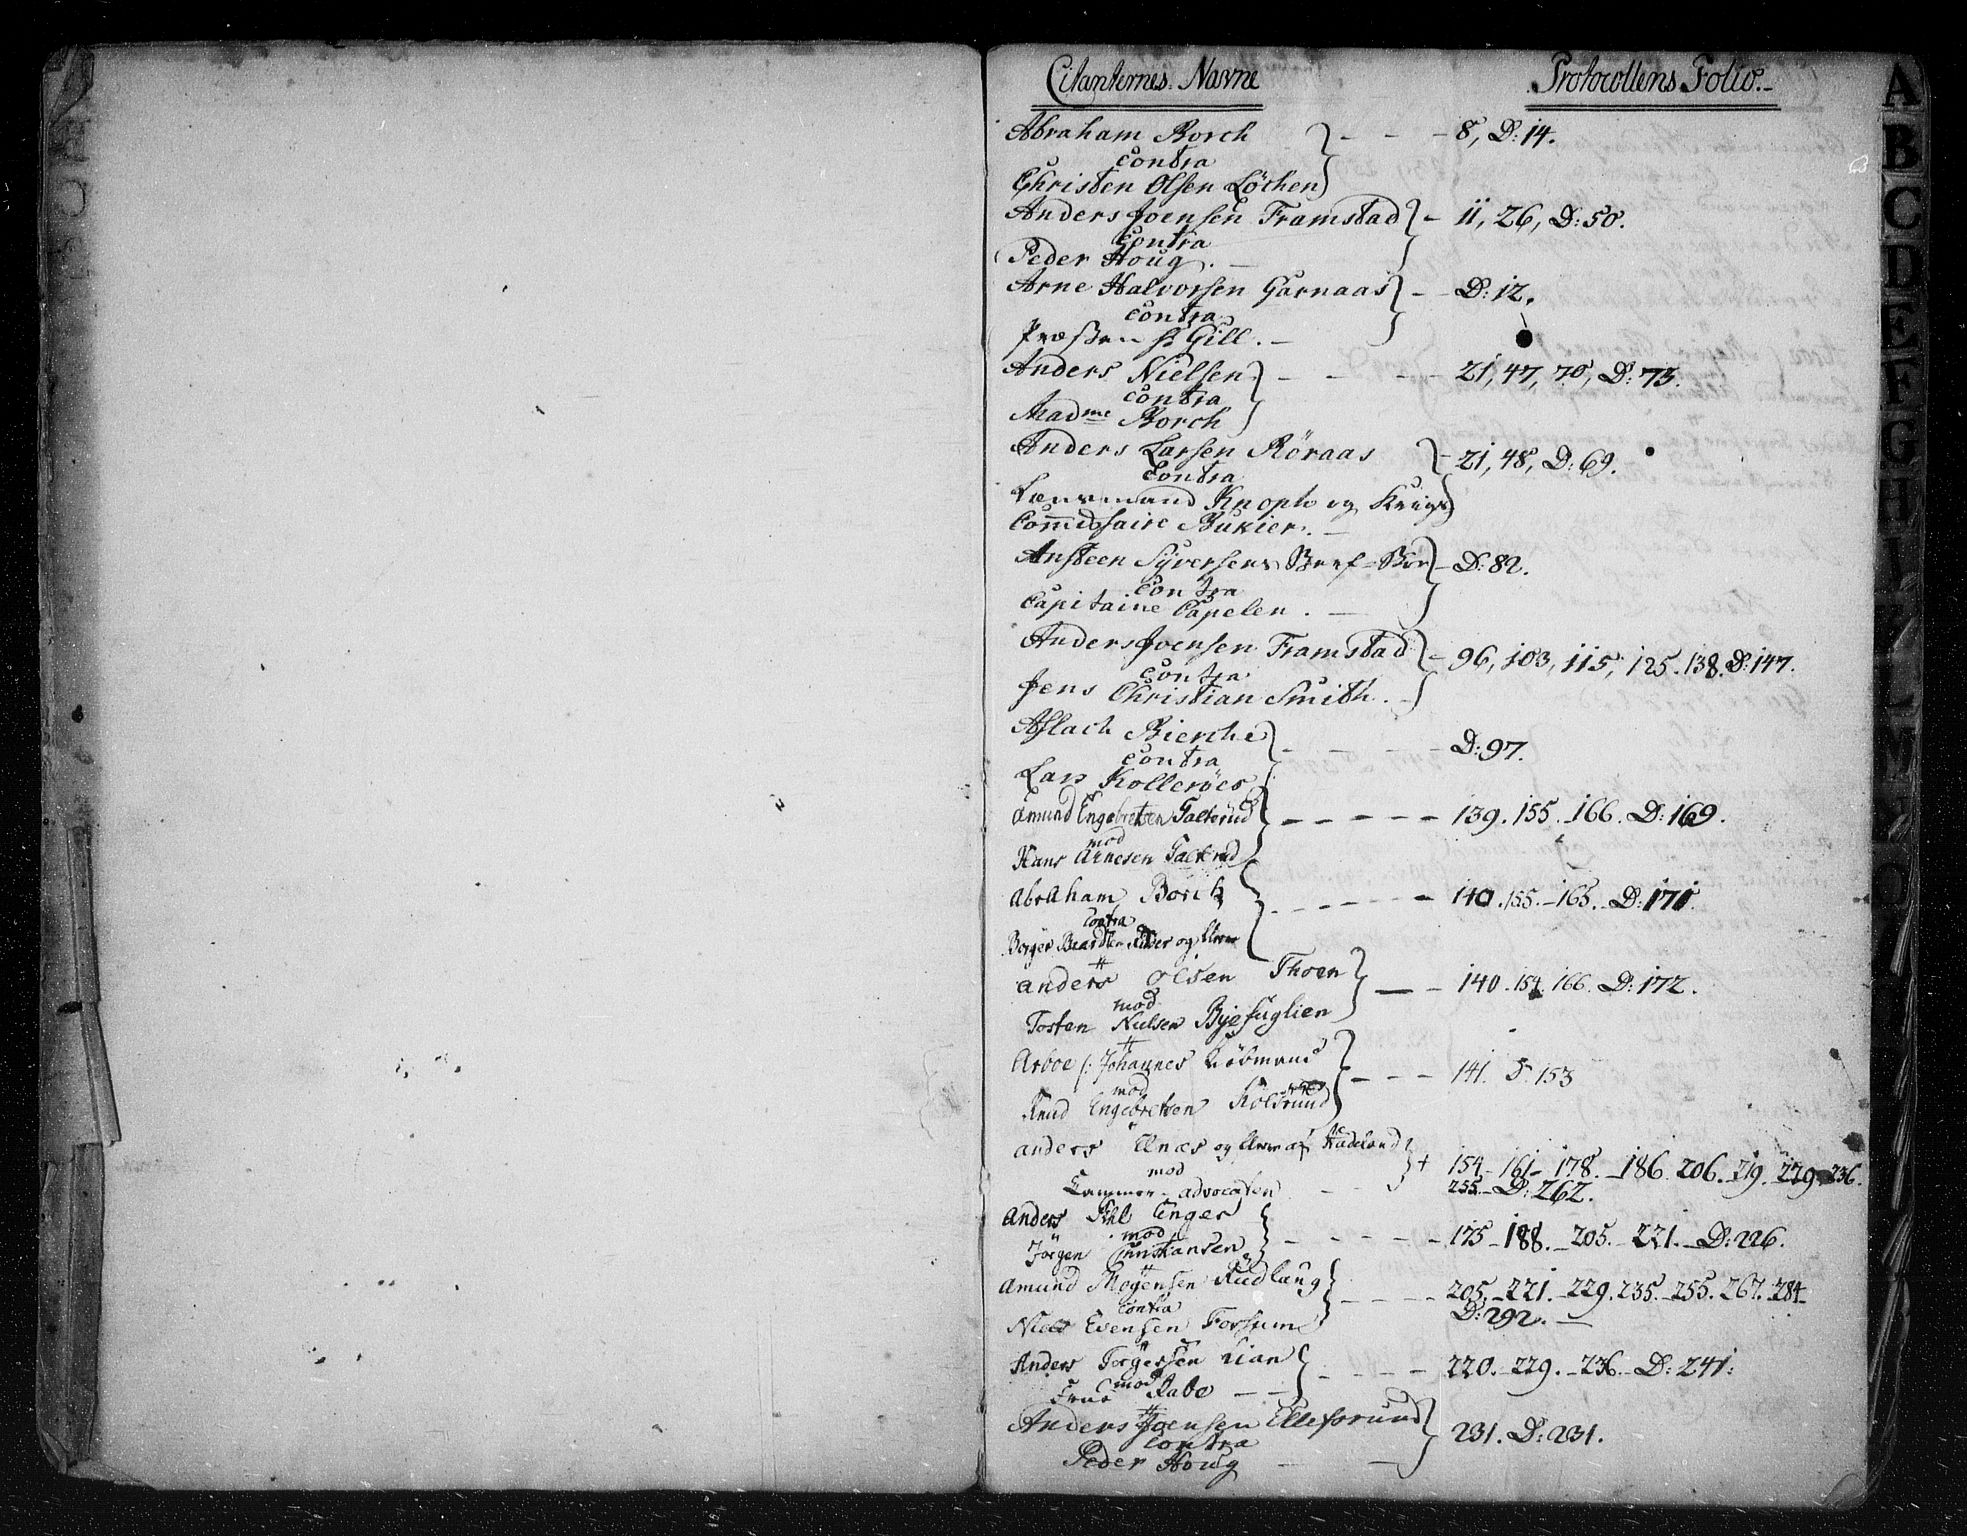 Citanternes Navne Protocollens Folio.
Abraham Borch - - - 8, D: 14.
contra
Christen Olsen Löchen
Anders Joensen Framstad - 11, 26, D: 50.
Contra
Peder Houg. -
Arne Halvorsen Garnaas - - D: 12.
contra
Præsten hr Gill. -
Anders Nielsen - - - 21, 47, 70, D: 73.
contra
Madme Borch
Anders Larsen Röraas - 21, 48, D: 69.
Contra
Lensmand Knoph og Krigs
Commissaire Bukier. -
Ansteen Syversens - D: 82.
Contra
Capitaine Capelen. -
Anders Joensen Framstad - 96, 103, 115, 125. 138. D: 147.
Contra
Jens Christian Smith. -
Aslach Bierche - - - D: 97.
contra
Lars Kolleröes
Amund Engebretsen Galterud - - - - - 139. 155. 166. D: 169.
mod
Hans Arnesen Galterud
Abraham Borch - - - - - 140. 155. - 165. D: 171.
Contra
Börger og fleere
Anders Olsen Thoen — - 140. 154. 166. D: 172.
mod
Tosten Nielsen Byefuglien
Arboe /: Johannes Kiöbmand - - - 141. D. 153
mod
Knud Engebretsen Kolsrund
Anders Elnæs og fleere af Hadeland + 154 - 161 - 178. - 186. 206. - 219. - 229. 236.
mod 255. D: 262.
Cammer-advocaten - -
Anders Pohl Enger - - - - - 175 - 188. - 205. - 221. - D: 226.
mod
Jörgen Christiansen
Amund Mogensen Rudlaug - - - - 205. - 221. - 229. 235. - 255. 267. 284
Contra D: 292. —
Niels Evensen Forsum
Anders Torgersen Lian - - - - 220. - 229. - 236. - D: 241.
mod
Frue Rabe - -
Anders Joensen Ellefsrund 231. D: 231.
Contra
Peder Houg - -
A
B
C
D
E
F
G
H
I
K
L
M
N
O